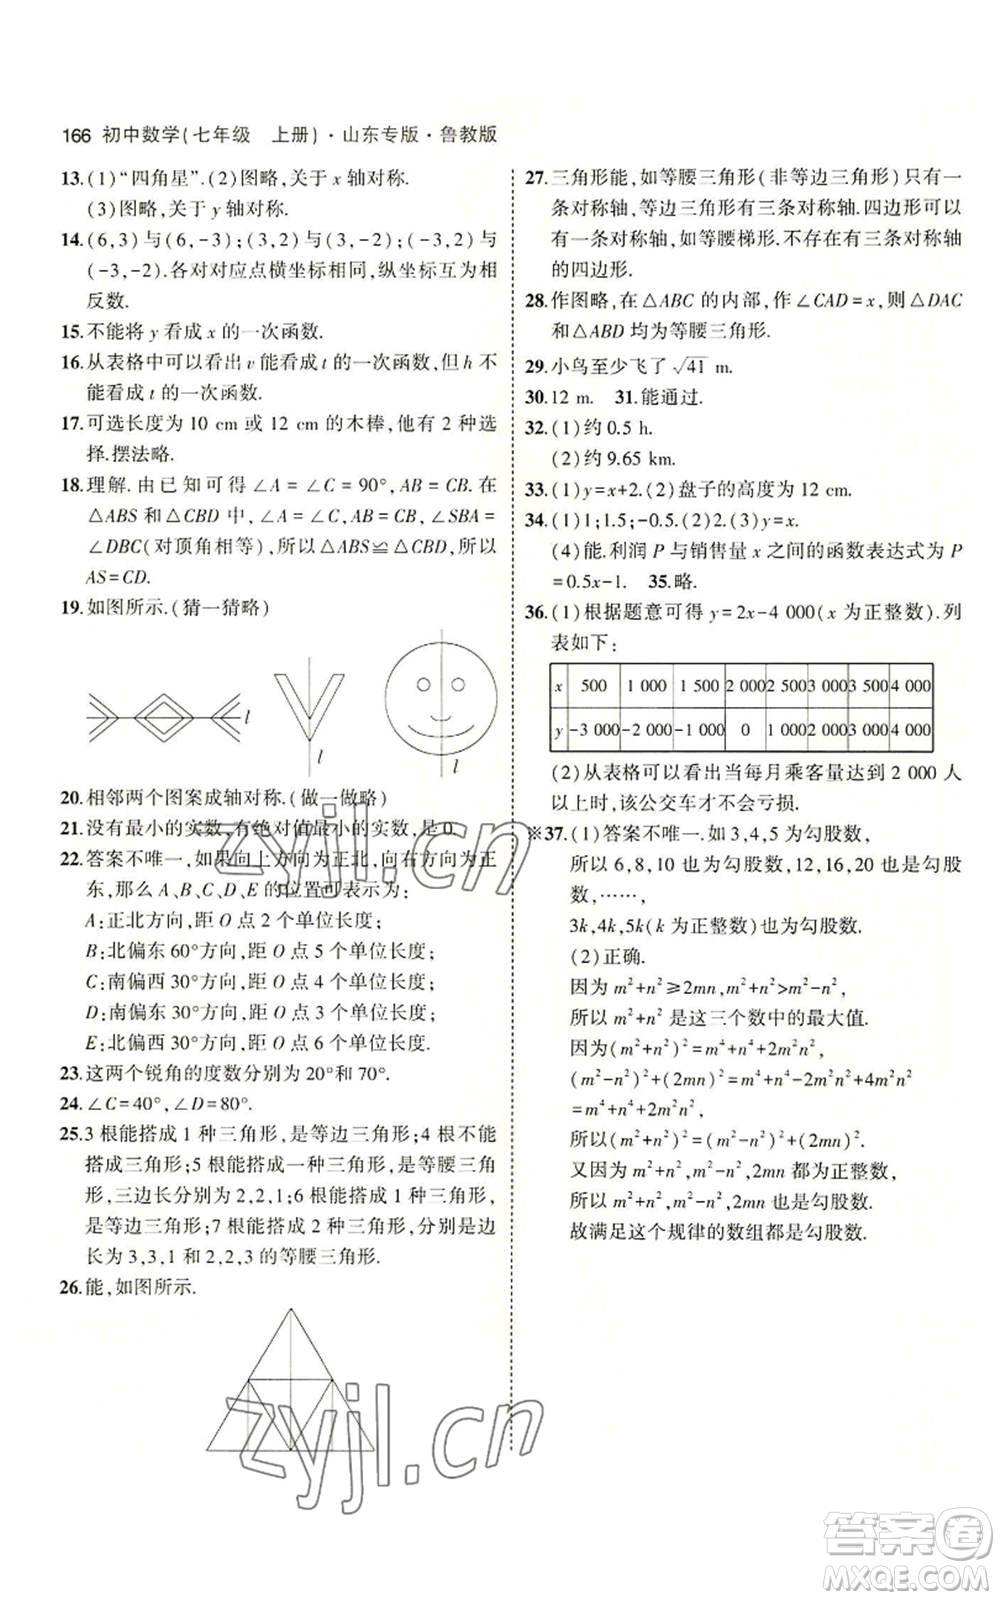 166 初中数学(七年级 上册)·山东专版·鲁教版
13.(1)“四角星”.(2)图略,关于 x 轴对称.
(3)图略,关于 y 轴对称.
14.(6,3)与(6,-3);(3,2)与(3,-2);(-3,2)与
(-3,-2).各对对应点横坐标相同,纵坐标互为相
反数.
15.不能将 y 看成 x 的一次函数.
16.从表格中可以看出 v 能看成 t 的一次函数,但 h 不
能看成 t 的一次函数.
17.可选长度为 10 cm 或 12 cm 的木棒,他有 2 种选
择.摆法略.
18.理解.由已知可得∠A=∠C=90°,AB=CB.在
△ABS 和△CBD 中,∠A=∠C,AB=CB,∠SBA=
∠DBC(对顶角相等),所以△ABS≌△CBD,所以
AS=CD.
19.如图所示.(猜一猜略)
l
l
l
20.相邻两个图案成轴对称.(做一做略)
21.没有最小的实数,有绝对值最小的实数,是 0.
22.答案不唯一,如果向上方向为正北,向右方向为正
东,那么 A、B、C、D、E 的位置可表示为:
A:正北方向,距 O 点 2 个单位长度;
B:北偏东 60°方向,距 O 点 5 个单位长度;
C:南偏西 30°方向,距 O 点 4 个单位长度;
D:南偏东 30°方向,距 O 点 4 个单位长度;
E:北偏西 30°方向,距 O 点 6 个单位长度.
23.这两个锐角的度数分别为 20°和 70°.
24.∠C=40°,∠D=80°.
25.3 根能搭成 1 种三角形,是等边三角形;4 根不能
搭成三角形;5 根能搭成一种三角形,是等腰三角
形,三边长分别为 2,2,1;6 根能搭成 1 种三角形,
是等边三角形;7 根能搭成 2 种三角形,分别是边
长为 3,3,1 和 2,2,3 的等腰三角形.
26.能,如图所示.
27.三角形能,如等腰三角形(非等边三角形)只有一
条对称轴,等边三角形有三条对称轴.四边形可以
有一条对称轴,如等腰梯形.不存在有三条对称轴
的四边形.
28.作图略,在△ABC 的内部,作∠CAD=x,则△DAC
和△ABD 均为等腰三角形.
29.小鸟至少飞了√41 m.
30.12 m. 31.能通过.
32.(1)约 0.5 h.
(2)约 9.65 km.
33.(1)y=x+2.(2)盘子的高度为 12 cm.
34.(1)1;1.5;-0.5.(2)2.(3)y=x.
(4)能.利润 P 与销售量 x 之间的函数表达式为 P
=0.5x-1. 35.略.
36.(1)根据题意可得 y=2x-4 000(x 为正整数).列
表如下:
x 500 1 000 1 500 2 000 2 500 3 000 3 500 4 000
y -3 000 -2 000 -1 000 0 1 000 2 000 3 000 4 000
(2)从表格可以看出当每月乘客量达到 2 000 人
以上时,该公交车才不会亏损.
※37.(1)答案不唯一.如 3,4,5 为勾股数,
所以 6,8,10 也为勾股数,12,16,20 也是勾股
数,……,
3k,4k,5k(k 为正整数)也为勾股数.
(2)正确.
因为 m²+n²≥2mn,m²+n²>m²-n²,
所以 m²+n² 是这三个数中的最大值.
因为(m²+n²)²=m⁴+n⁴+2m²n²,
(m²-n²)²+(2mn)²=m⁴+n⁴-2m²n²+4m²n²
=m⁴+n⁴+2m²n²,
所以(m²+n²)²=(m²-n²)²+(2mn)².
又因为 m²+n²,m²-n²,2mn 均为正整数,
所以 m²+n²,m²-n²,2mn 是勾股数.
故满足这个规律的数组都是勾股数.
zyjl.cn
zyjl.cn
答案卷
MXQE.COM